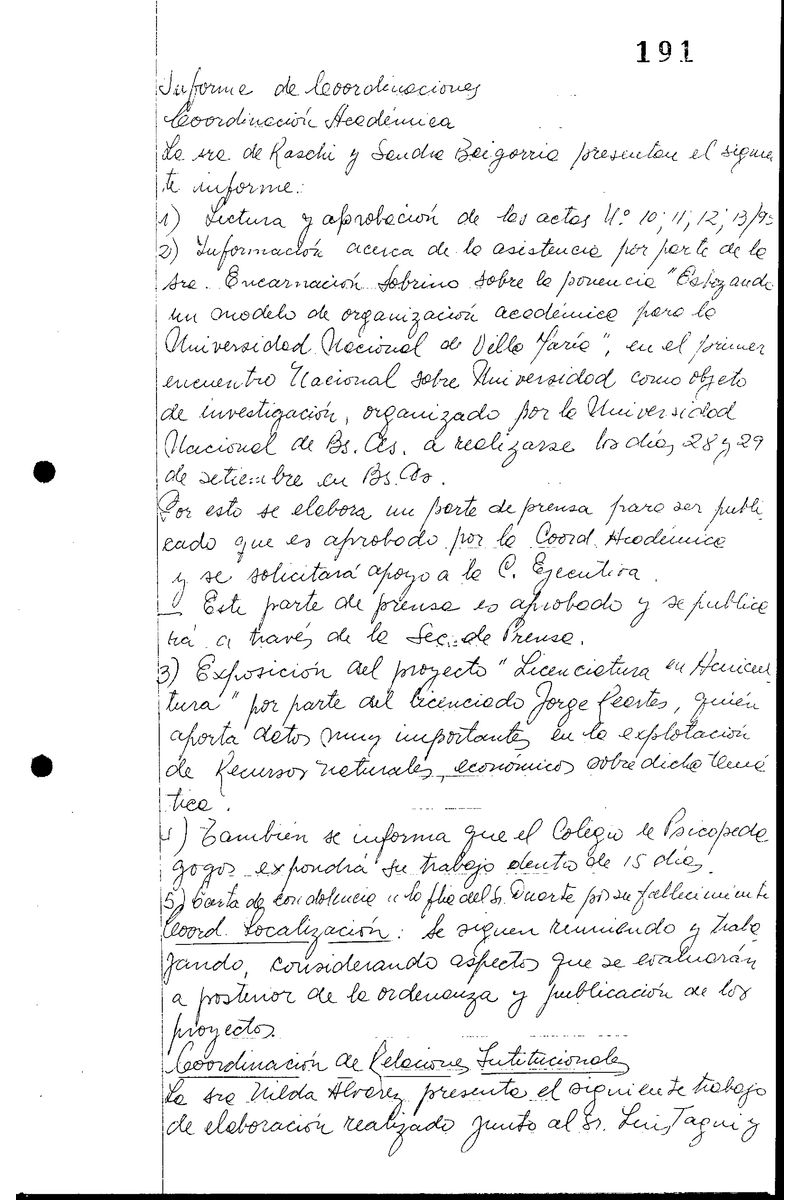 191
Informe de Coordinaciones
Coordinación Académica
La sra de Raschi y Sandra Baigorria presentan el siguien
te informe:
1) Lectura y aprobación de las actas N° 10, 11, 12, 13/95
2) Información acerca de la asistencia por parte de la
sra. Encarnación Sobrino sobre la ponencia "Esbozando
un modelo de organización académica para la
Universidad Nacional de Villa María", en el primer
encuentro Nacional sobre Universidad como objeto
de investigación, organizado por la Universidad
Nacional de Bs. As. a realizarse los días 28 y 29
de setiembre en Bs. As.
Por esto se elabora un parte de prensa para ser publi
cado que es aprobado por la Coord. Académica
y se solicitará apoyo a la C. Ejecutiva.
_ Este parte de prensa es aprobado y se publica
rá a través de la Sec. de Prensa.
3) Exposición del proyecto "Licenciatura en
tura" por parte del licenciado Jorge quién
aporta datos muy importantes en la explotación
de Recursos naturales, económicos sobre dicha temá
tica.
4) También se informa que el Colegio de Psicopeda
gogos expondrá su trabajo dentro de 15 días.
5) Carta de condolencia a la flia del Sr. Duarte por su fallecimiento
Coord. Localización: Se siguen reuniendo y traba
jando, considerando aspectos que se evaluarán
a posterior de la ordenanza y publicación de los
proyectos.
Coordinación de Relaciones Intitucionales
La sra Nilda Alvarez presenta el siguiente trabajo
de elaboración realizado junto al Sr. Luis Tagni y